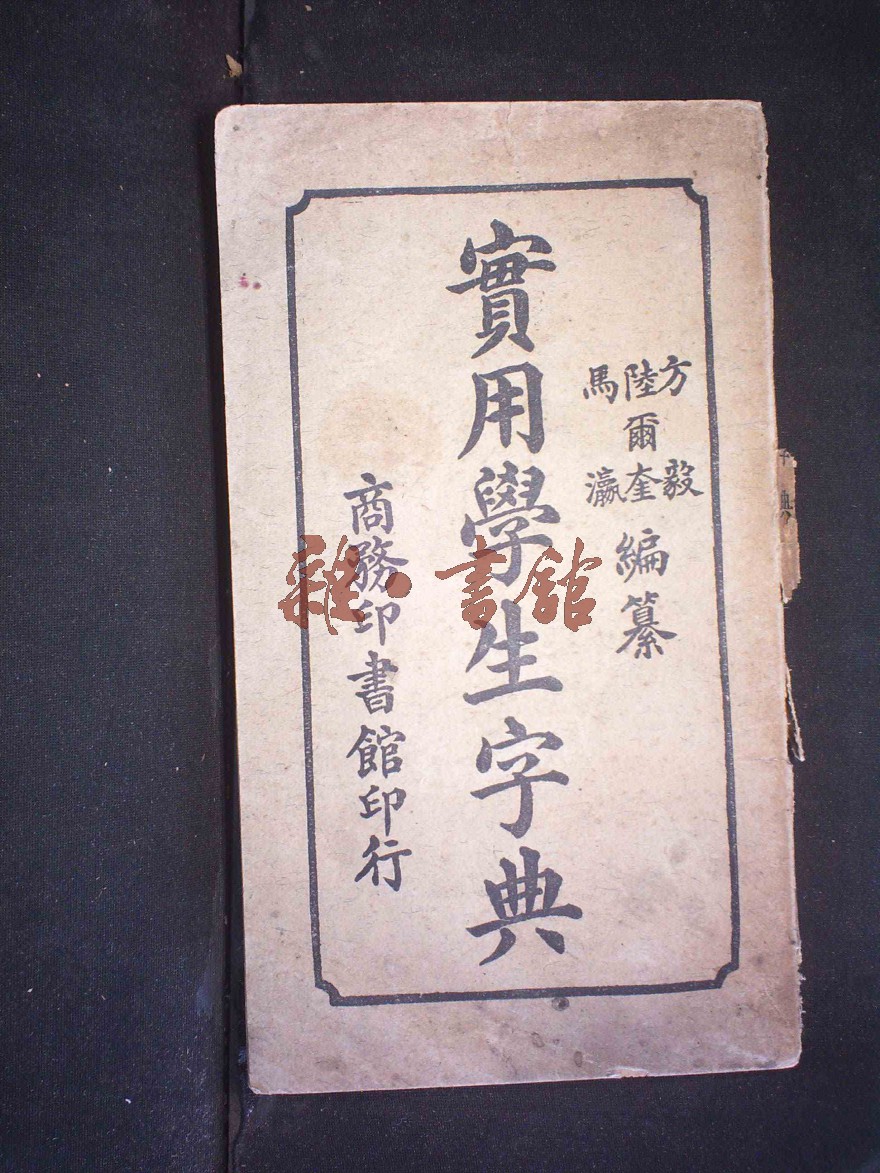 方毅
陸爾奎
馬瀛
編纂
實用學生字典
商務印書館印行
雜·書館
字典